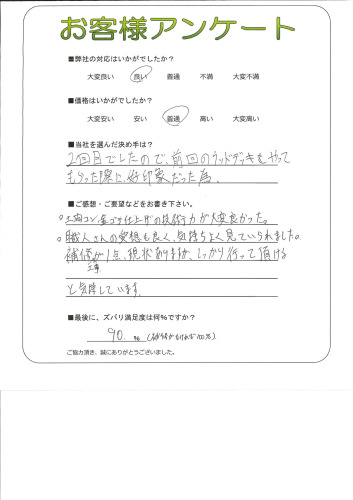 お客様アンケート
■弊社の対応はいかがでしたか？
大変良い 良い 普通 不満 大変不満
■価格はいかがでしたか？
大変安い 安い 普通 高い 大変高い
■当社を選んだ決め手は？
2回目でしたので、前回のウッドデッキをやって
もらった際に、好印象だった為。
■ご感想・ご要望などをお書き下さい。
○土間コン金ゴテ仕上げの技術力が大変良かった。
○職人さんの愛想も良く、気持ちよく見ていられました。
補修が1点、現状ありますが、しっかり行って頂ける
工事
と気持しています。
■最後に、ズバリ満足度は何%ですか？
90 %
ご協力頂き、誠にありがとうございました。